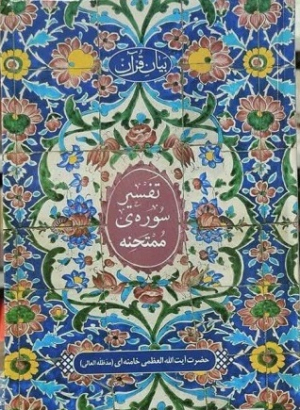 بیان قرآن
تفسیر
سوره‌ی
ممتحنه
حضرت آیت الله العظمی خامنه ای (مدظله العالی)